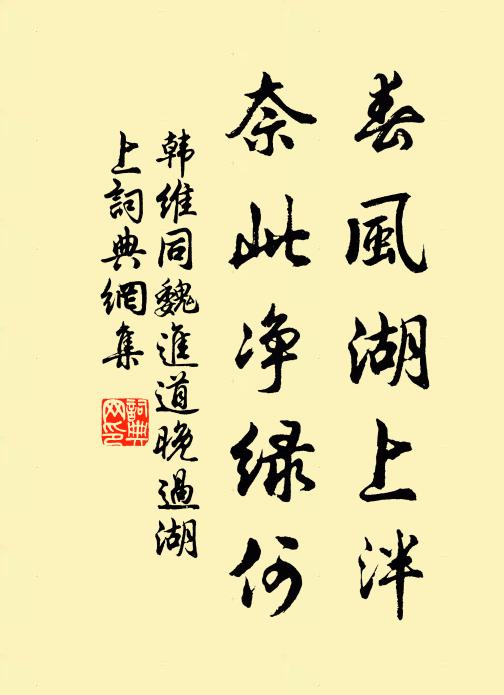 春風湖上泮
奈此净緑何
韩維同魏進道晚過湖
上詞典網集
詞典网印